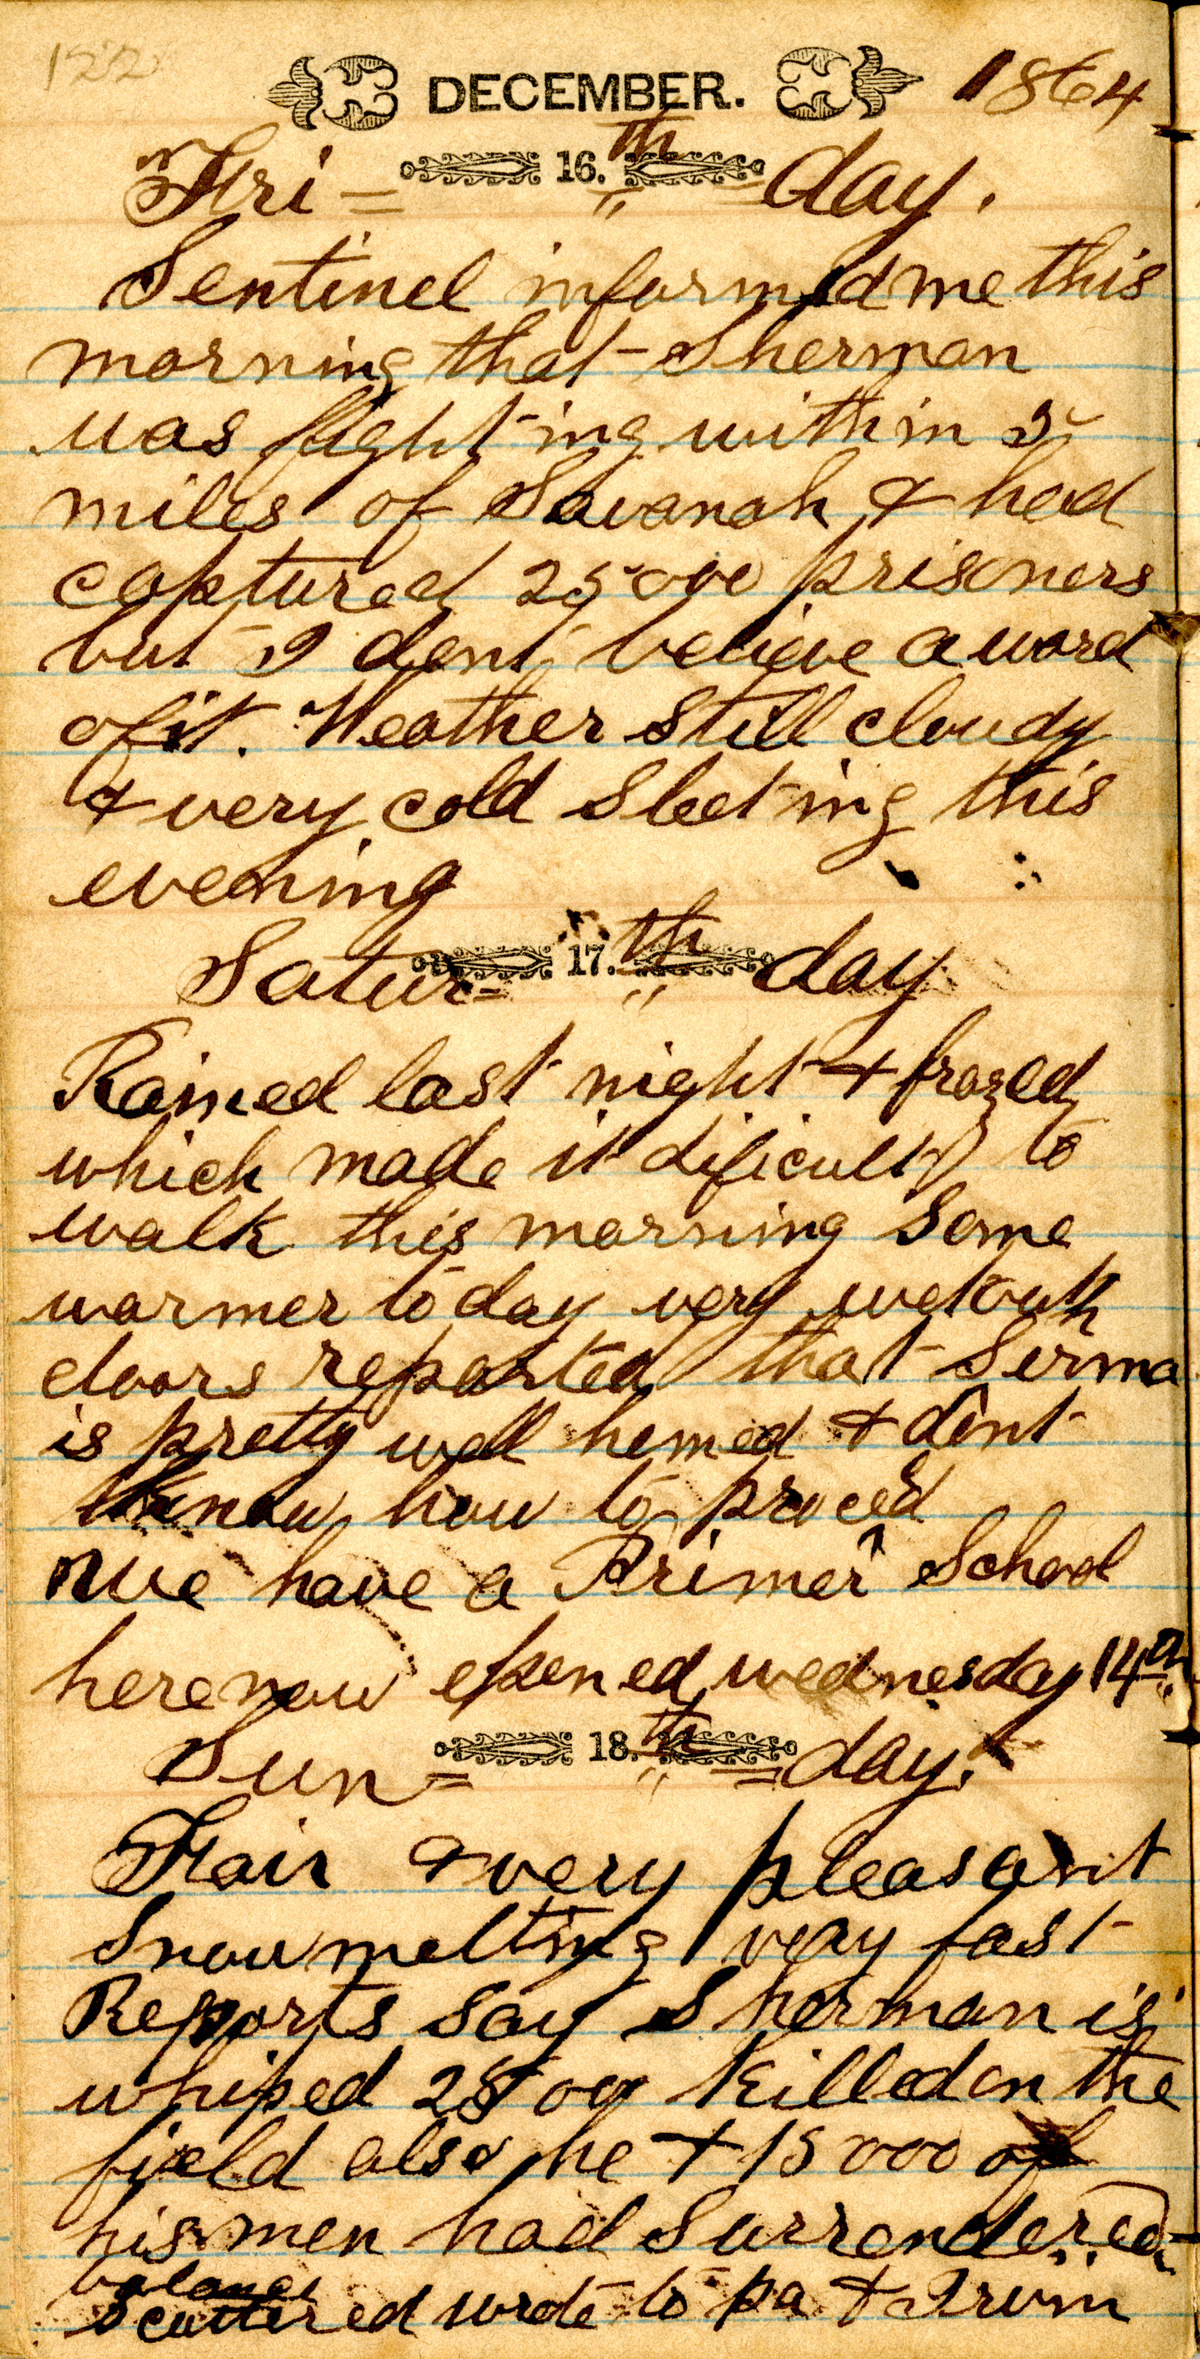 122
DECEMBER. 1864
Fri= 16.th =day.
Sentinel informed me this
morning that Sherman
was fighting within 5
miles of Savanah & had
captured 25000 prisoners
but I dont believe a word
of it. Weather still cloudy
& very cold Sleeting this
evening
Satur= 17.th day
Rained last night & frozed
which made it dificult to
walk this morning Some
warmer to day very wet out
doors reported that Serma
is pretty well hemed & dont
know how to proced
We have a Primer School
here now opened wednesday 14th
Sun= 18.th =day.
Fair & very pleasant
Snow melting very fast
Reports Say Sherman is
whiped killed on the
field also he & 15000 of
his men had Surrendered
balance
Scattered wrote to pa & Irvin